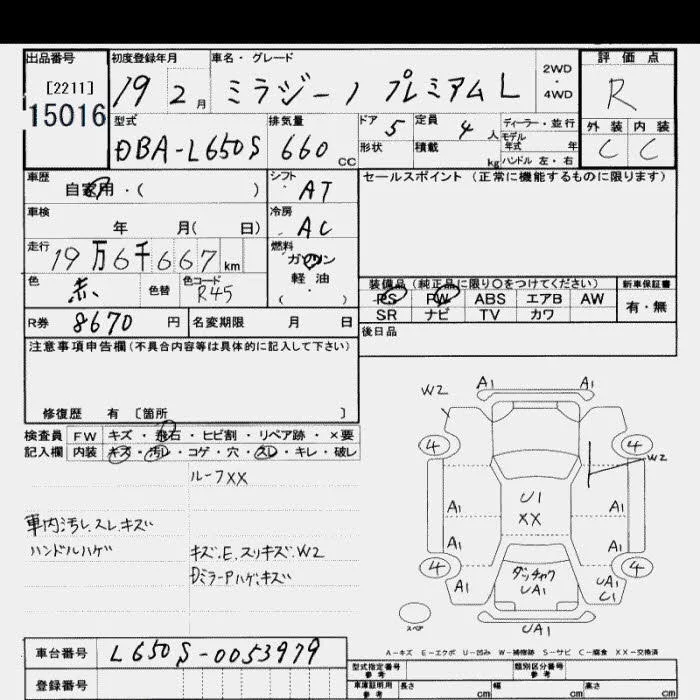 出品番号
[2211]
15016
初度登録年月
19 2 月
車名・グレード
ミラジーノ プレミアム L
2WD
4WD
評価点
R
型式
DBA-L650S
排気量
660 CC
ドア
5
定員
4 人
形状
積載
kg
ディーラー・並行
モデル
年式 年
ハンドル 左・右
外装 内装
C C
車歴
自家用・( )
シフト
AT
セールスポイント (正常に機能するものに限ります)
車検
年 月( 日)
冷房
AC
走行
19万6千667 km
燃料
ガソリン
軽油
( )
色
赤
色替
色コード
R45
装備品 (純正品に限り○をつけてください)
PS PW ABS エアB AW
SR ナビ TV カワ
新車保証書
有・無
R券 8670 円
名変期限 月 日
後日品
注意事項申告欄(不具合内容等は具体的に記入して下さい)
修復歴 有 〔箇所 〕
検査員
記入欄
FW キズ・飛石・ヒビ割・リペア跡・×要
内装 キズ・汚レ・コゲ・穴・スレ・キレ・破レ
ルーフXX
車内汚レ.スレ.キズ
ハンドルハゲ
キズ.E.スリキズ.W2
ミラーPハゲ.キズ
W2 A1 A1
4 4
W2
U1
XX
A1 A1
A1 A1
4 4
A1
ダッチャク
UA1
UA1
C1
スペア
UA1
A-キズ E-エクボ U-凹み W-補修跡 S-サビ C-腐食 XX-交換済
車台番号 L650S-0053979
登録番号
型式指定番号
参考
類別区分番号
参考
車庫証明用
参考
長さ cm
幅 cm
高さ cm